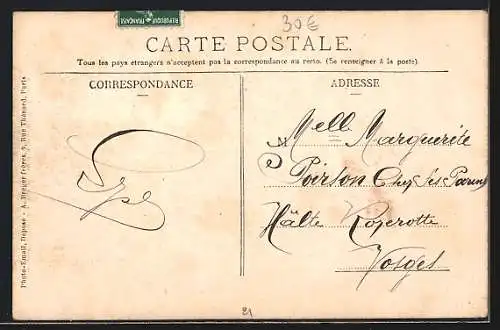 REPUBLIQUE FRANÇAISE
30€
CARTE POSTALE.
Tous les pays étrangers n'acceptent pas la correspondance au recto. (Se renseigner à la poste).
CORRESPONDANCE
ADRESSE
Mell Marguerite
Poirson Chez Ses Parents
Hâlte Rozerotte
Vosges
Photo-Email, Déposé - A. Breger frères, 9, Rue Thénard, Paris
21